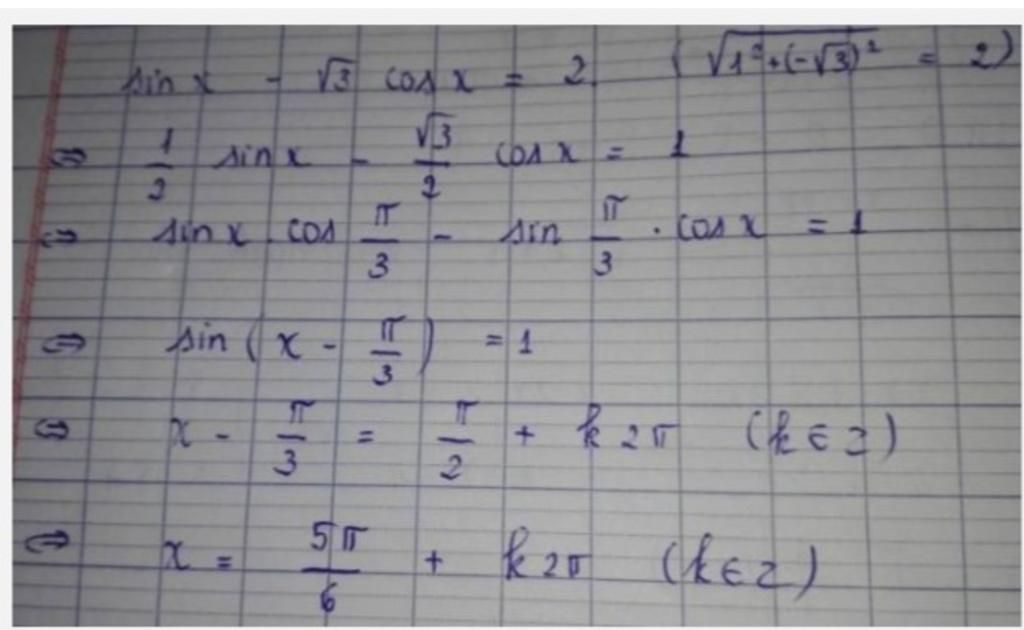 sin x - √3 cos x = 2 (√(1² + (-√3)²) = 2)
⇔ 1/2 sin x - √3/2 cos x = 1
⇔ sin x . cos π/3 - sin π/3 . cos x = 1
⇔ sin(x - π/3) = 1
⇔ x - π/3 = π/2 + k2π (k ∈ z)
⇔ x = 5π/6 + k2π (k ∈ z)